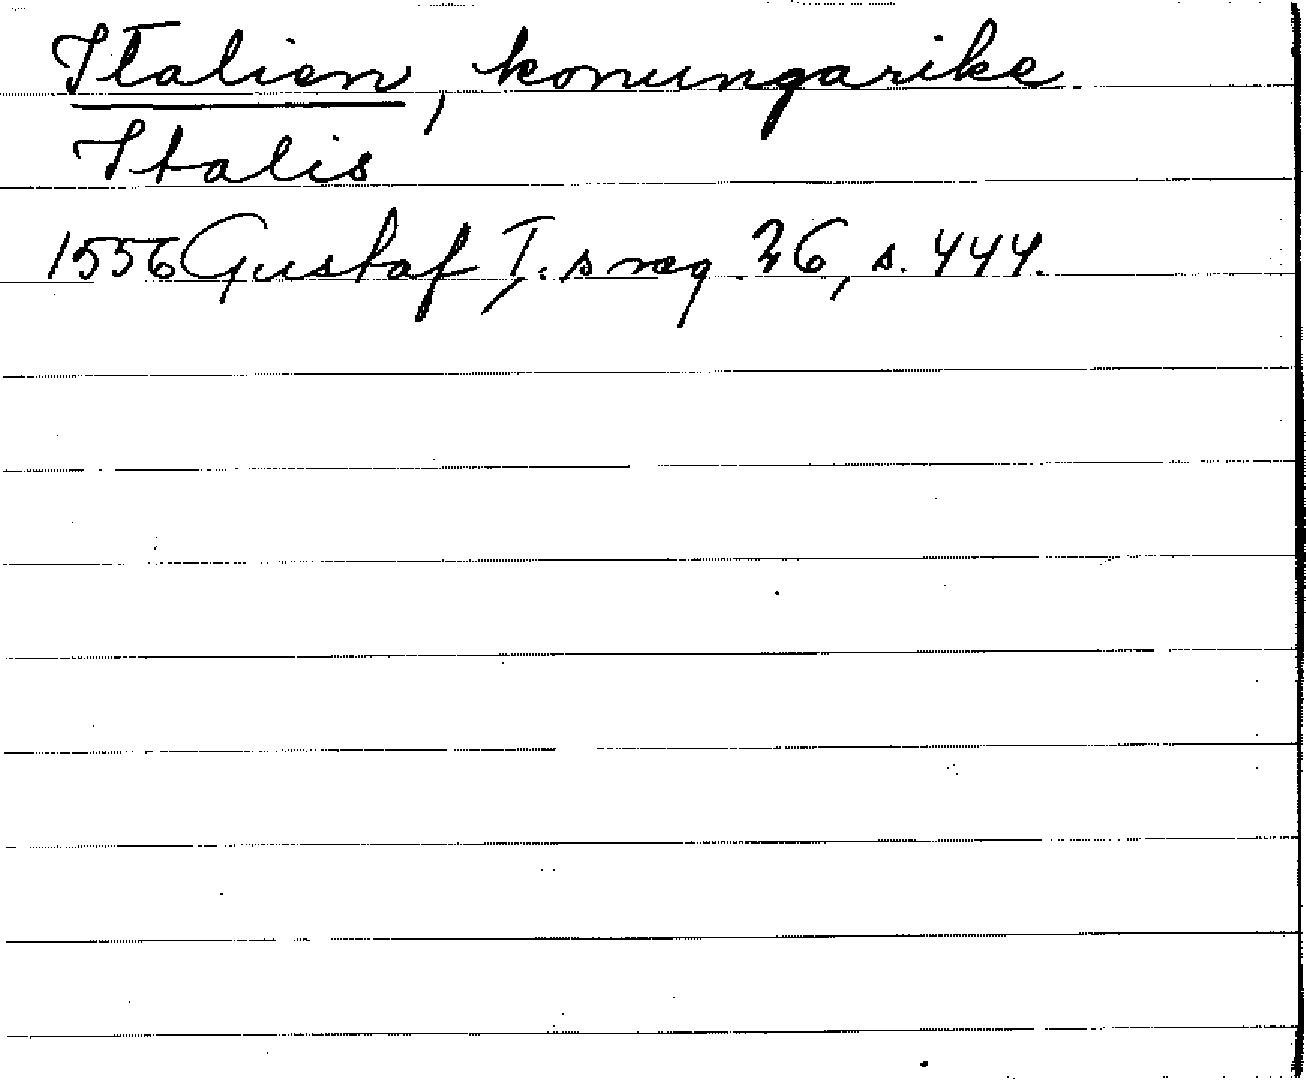 Italien, konungarike
Italis
1556 Gustaf I:s reg 26, s. 444.